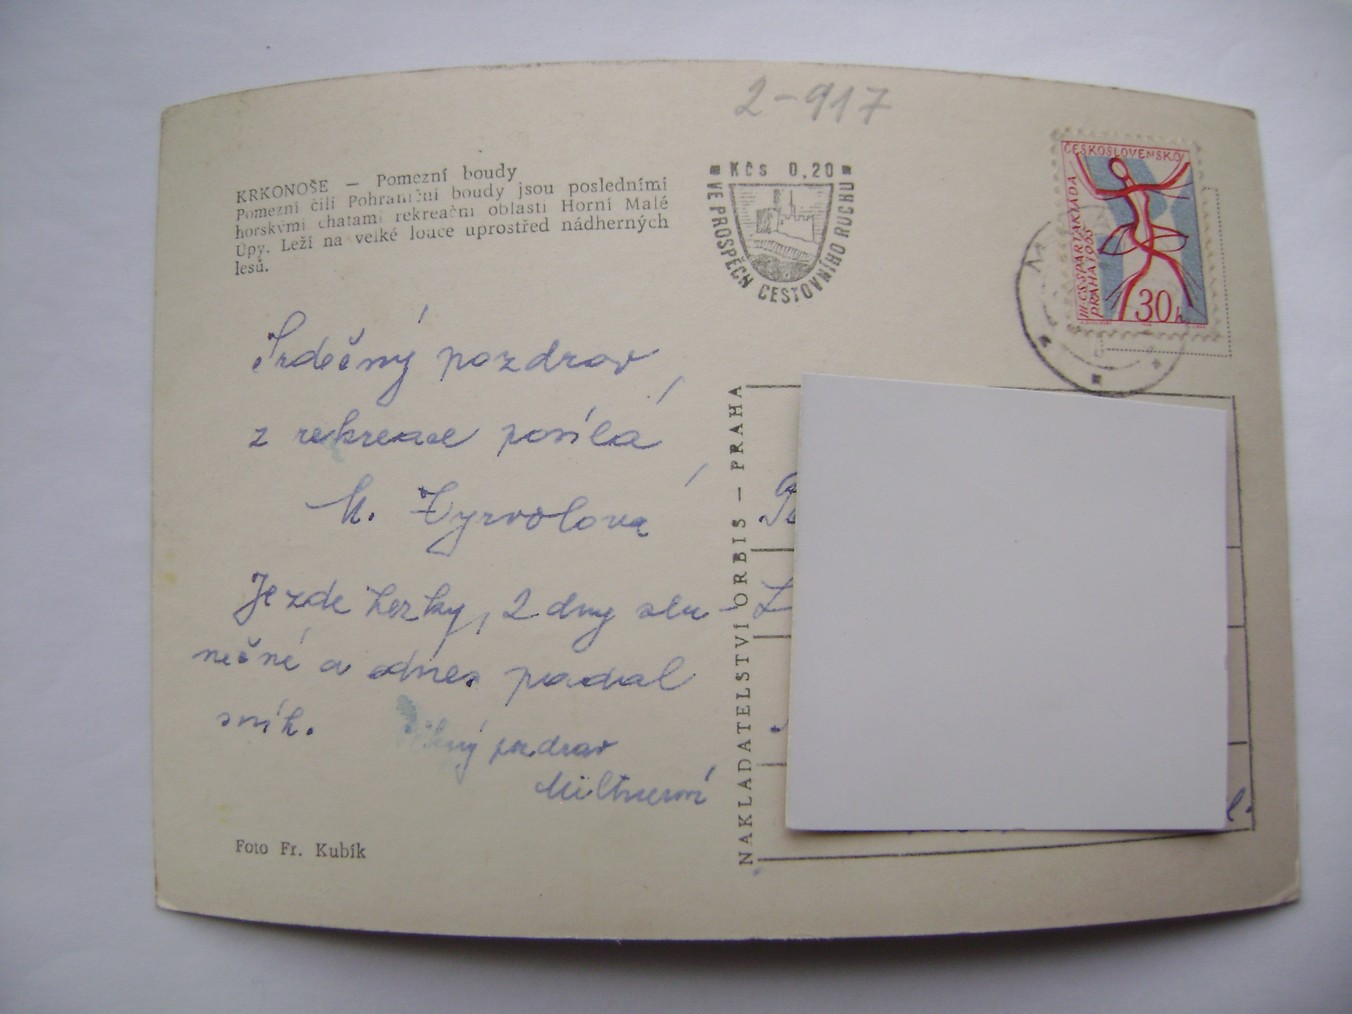 2-917
KRKONOŠE — Pomezní boudy
Pomezní čili Pohraniční boudy jsou posledními
horskými chatami rekreační oblasti Horní Malé
Úpy. Leží na velké louce uprostřed nádherných
lesů.
Kčs 0,20
VE PROSPĚCH CESTOVNÍHO RUCHU
ČESKOSLOVENSKO
III. CS. SPARTAKIÁDA
PRAHA 1965
30 h
Srdečný pozdrav
z rekreace posílá
M.
Je zde hezky, 2 dny slu-
nečné a dnes padal
sníh.
pozdrav
NAKLADATELSTVÍ ORBIS — PRAHA
Foto Fr. Kubík